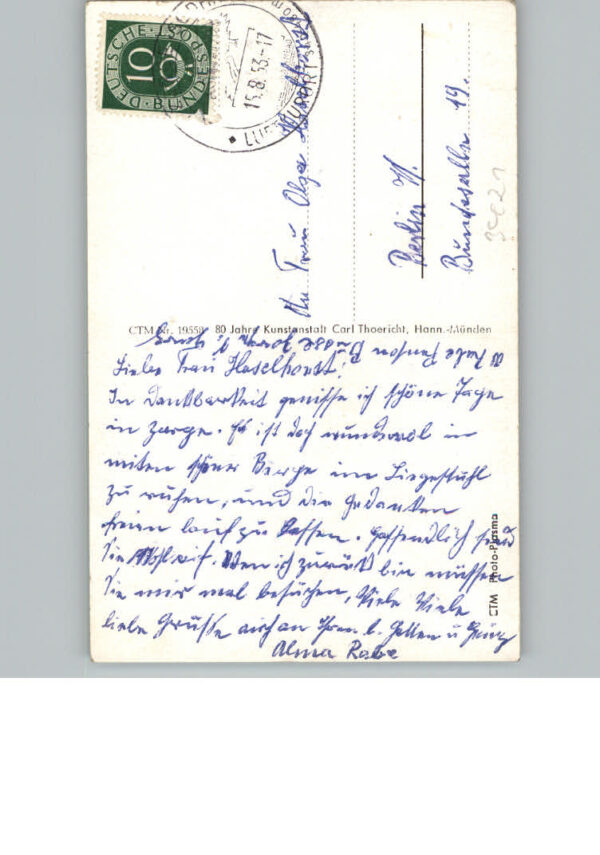 DEUTSCHE BUNDESPOST
10
15.8.53-17
LUFTKURORT
An Frau Olga Haselhorst
Berlin
Bundesallee 19.
CTM Nr. 19550 80 Jahre Kunstanstalt Carl Thoericht, Hann.-Münden
Liebe Frau Haselhorst!
In Dankbarkeit genisse ich schöne Tage
in Zorge. Es ist doch wundervol in
miten schöner Berge im Liegestuhl
zu ruhen, und die Gedanken
freien lauf zu lassen. Hoffendlich sind
Sie Wohl auf. Wen ich zurück bin müssen
Sie mir mal besuchen, Viele Viele
liebe Grüsse auch an Ihren l. Gatten u
Alma Rabe
CTM Photo-Plasma